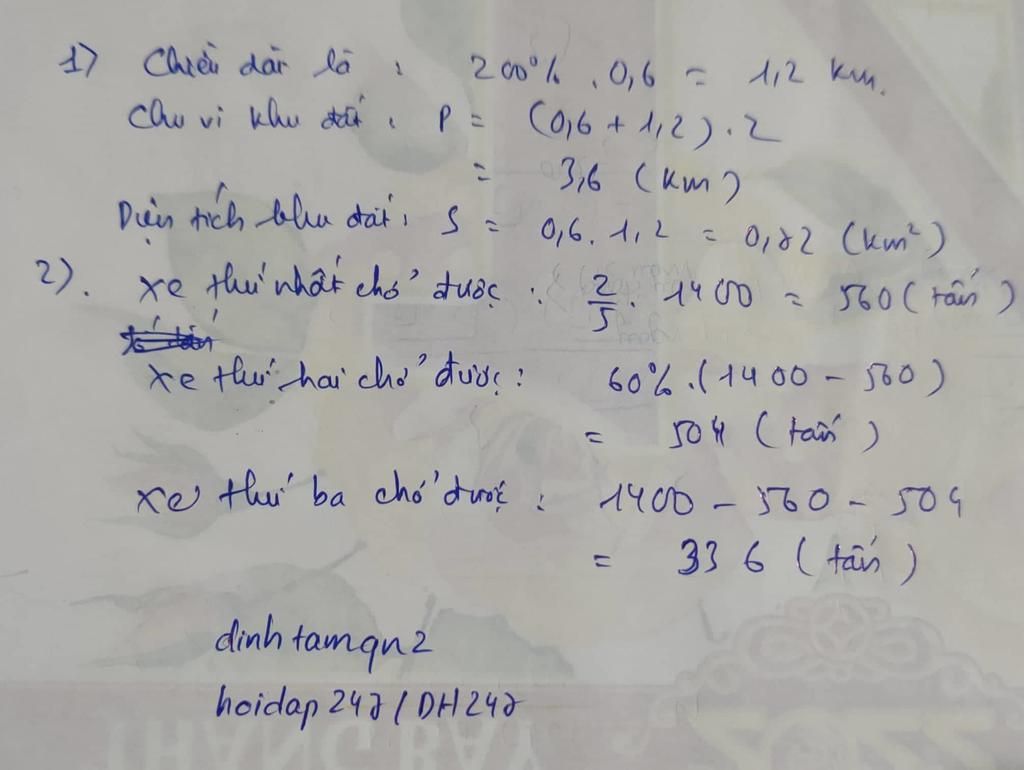 1) Chiều dài là : 200% . 0,6 = 1,2 km.
Chu vi khu đất : P = (0,6 + 1,2) . 2
= 3,6 (km)
Diện tích khu đất : S = 0,6 . 1,2 = 0,72 (km²)
2). xe thứ nhất chở được : 2/5 . 1400 = 560 (tấn)
xe thứ hai chở được : 60% . (1400 - 560)
= 504 (tấn)
xe thứ ba chở được : 1400 - 560 - 504
= 336 (tấn)
dinhtamqn2
hoidap247/DH247
THÁNG BẢY 2022